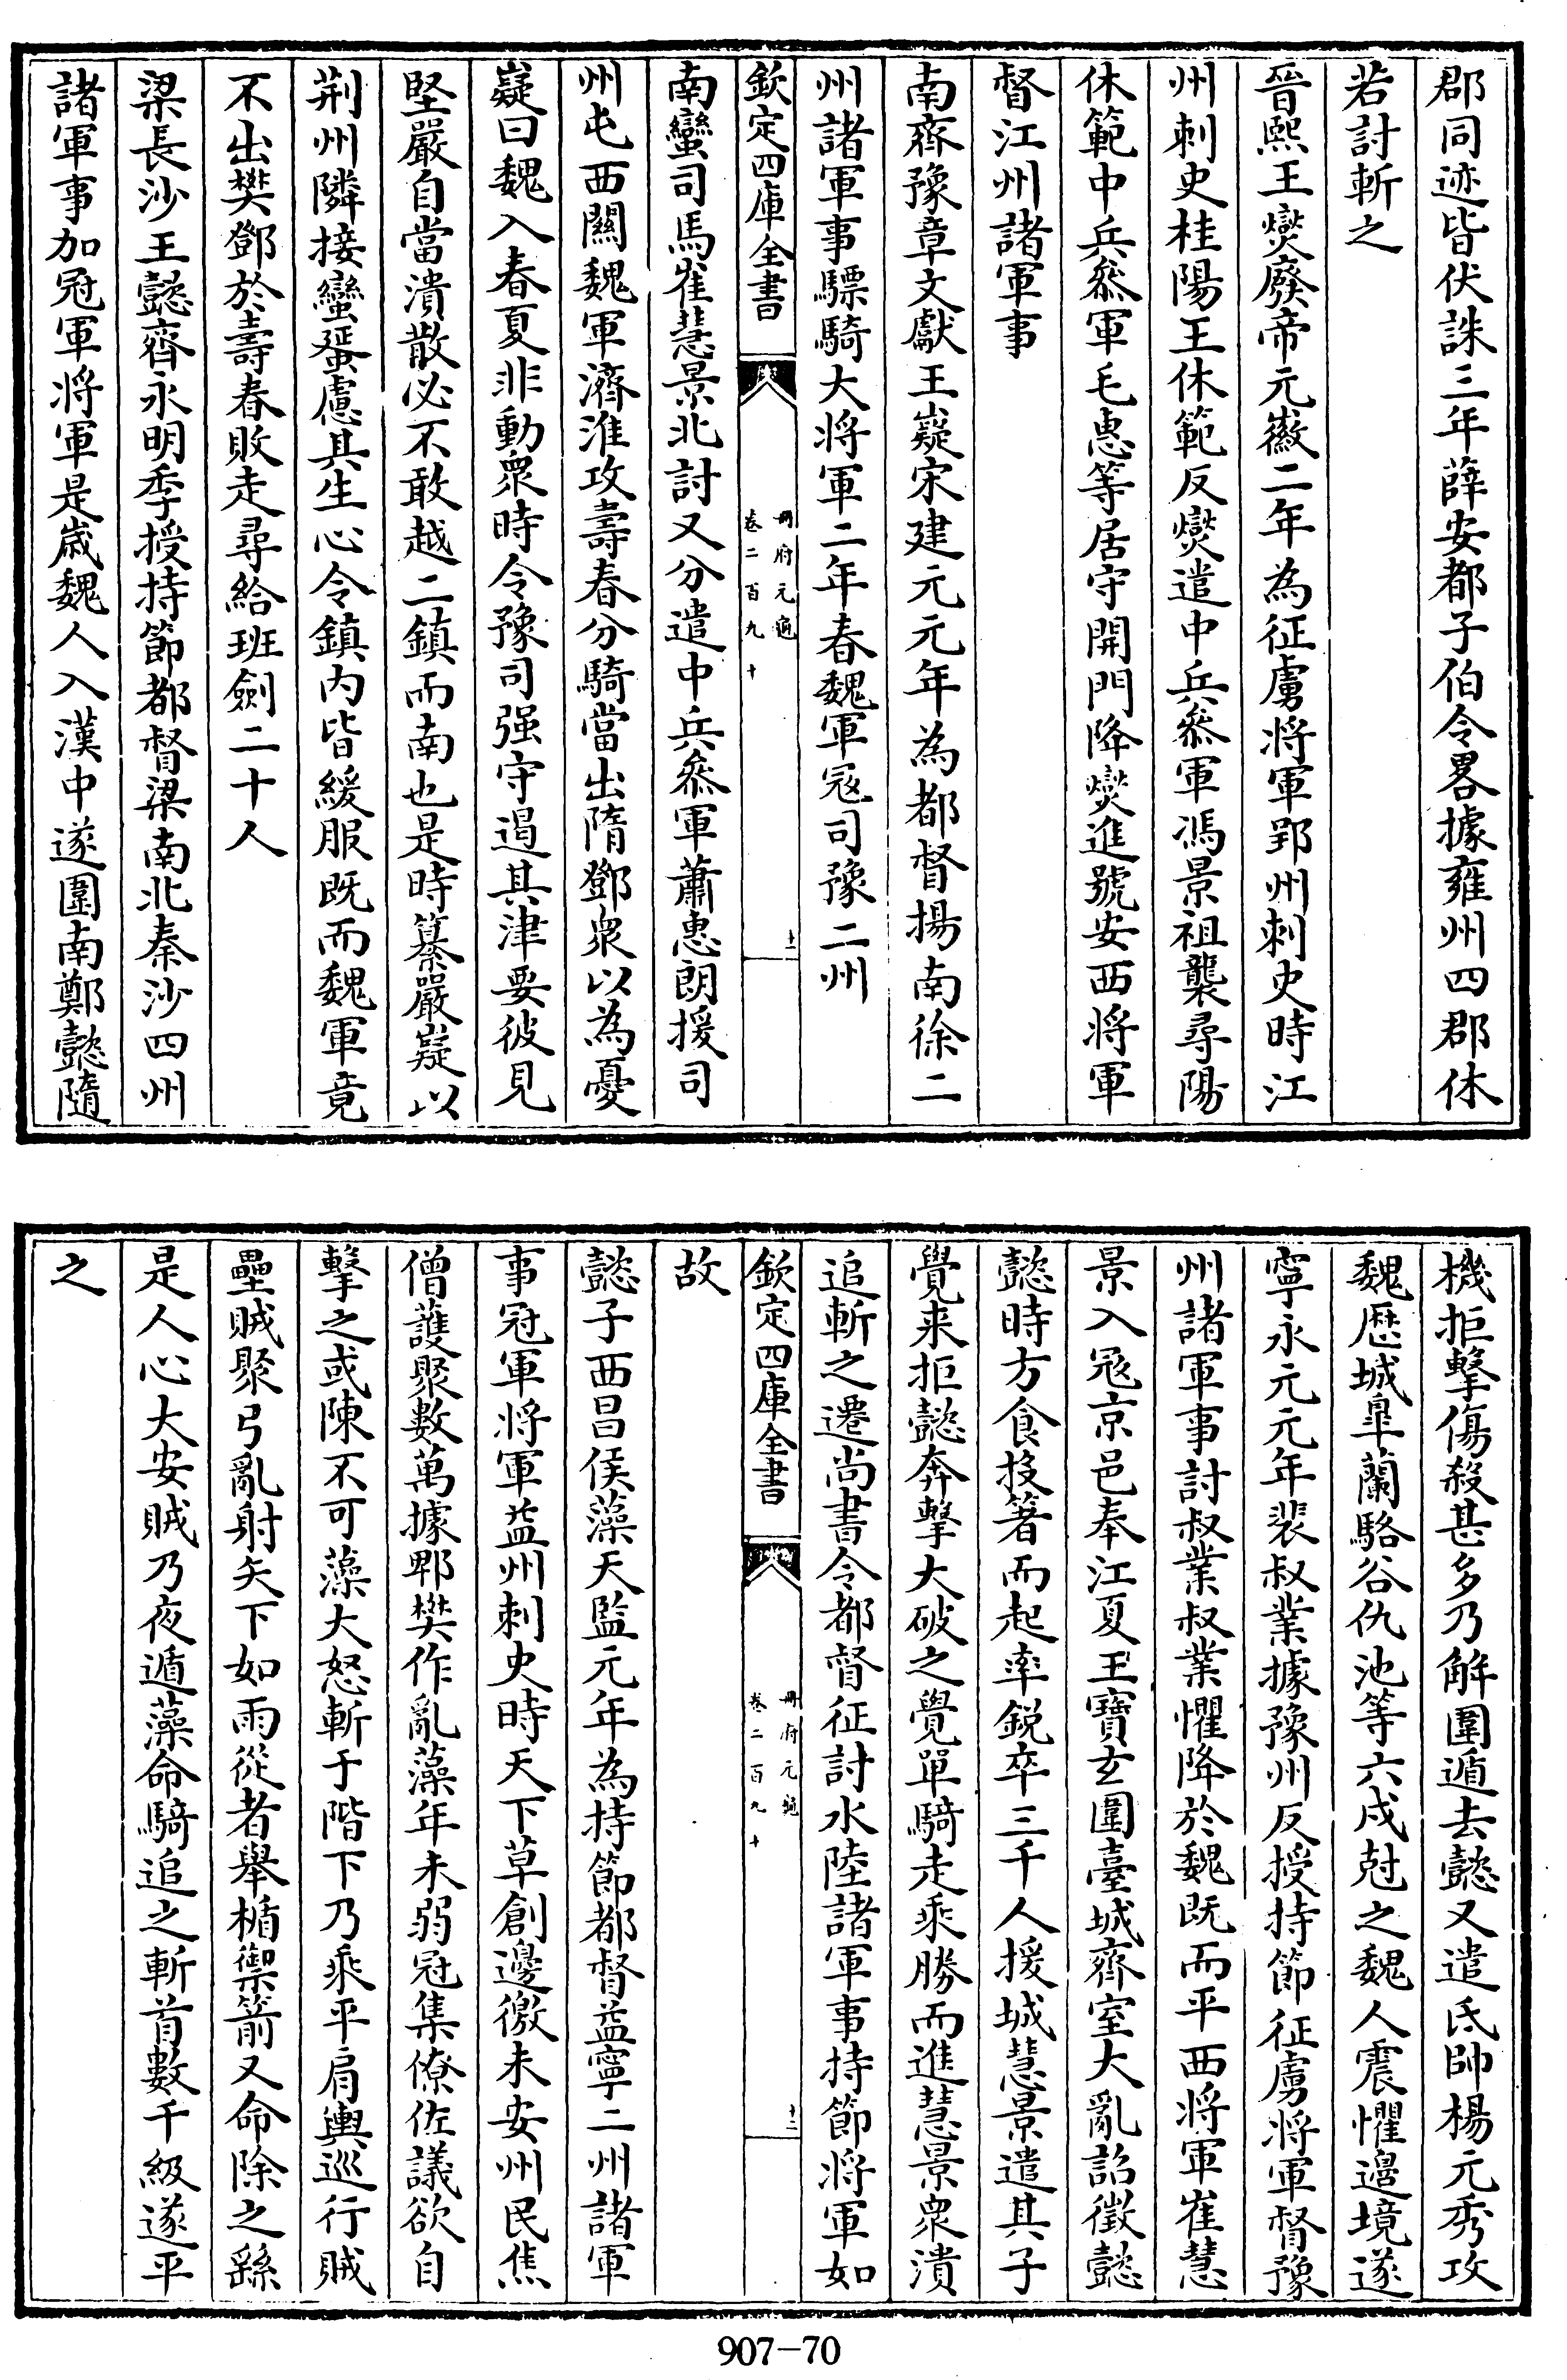 郡同迹皆伏誅三年薛安都子伯令畧據雍州四郡休
若討斬之
晉熙王燮廢帝元徽二年為征虜將軍郢州刺史時江
州刺史桂陽王休範反燮遣中兵叅軍馮景祖襲尋陽
休範中兵叅軍毛惠等居守開門降燮進號安西將軍
督江州諸軍事
南齊豫章文獻王嶷宋建元元年為都督揚南徐二
州諸軍事驃騎大將軍二年春魏軍宼司豫二州
欽定四庫全書
冊府元龜
卷二百九十
十一
南蠻司馬崔慧景北討又分遣中兵叅軍蕭惠朗援司
州屯西關魏軍濟淮攻壽春分騎當出隋鄧衆以為憂
嶷曰魏入春夏非動衆時令豫司强守遏其津要彼見
堅嚴自當潰散必不敢越二鎮而南也是時纂嚴嶷以
荆州隣接蠻蜑慮其生心令鎮内皆緩服既而魏軍竟
不出樊鄧於壽春敗走尋給班劍二十人
梁長沙王懿齊永明季授持節都督梁南北秦沙四州
諸軍事加冠軍將軍是歲魏人入漢中遂圍南鄭懿隨
機拒擊傷殺甚多乃解圍遁去懿又遣氐帥楊元秀攻
魏歷城臯蘭駱谷仇池等六戍尅之魏人震懼邊境遂
寧永元元年裴叔業據豫州反授持節征虜將軍督豫
州諸軍事討叔業叔業懼降於魏既而平西將軍崔慧
景入宼京邑奉江夏王寶玄圍臺城齊室大亂詔徵懿
懿時方食投箸而起率銳卒三千人援城慧景遣其子
覺来拒懿奔擊大破之覺單騎走乘勝而進慧景衆潰
追斬之遷尚書令都督征討水陸諸軍事持節將軍如
欽定四庫全書
冊府元龜
卷二百九十
十二
故
懿子西昌侯藻天監元年為持節都督益寧二州諸軍
事冠軍將軍益州刺史時天下草創邊徼未安州民焦
僧護聚數萬據郫樊作亂藻年未弱冠集僚佐議欲自
擊之或陳不可藻大怒斬于階下乃乘平肩輿巡行賊
壘賊聚弓亂射矢下如雨從者舉楯禦箭又命除之繇
是人心大安賊乃夜遁藻命騎追之斬首數千級遂平
之
907-70